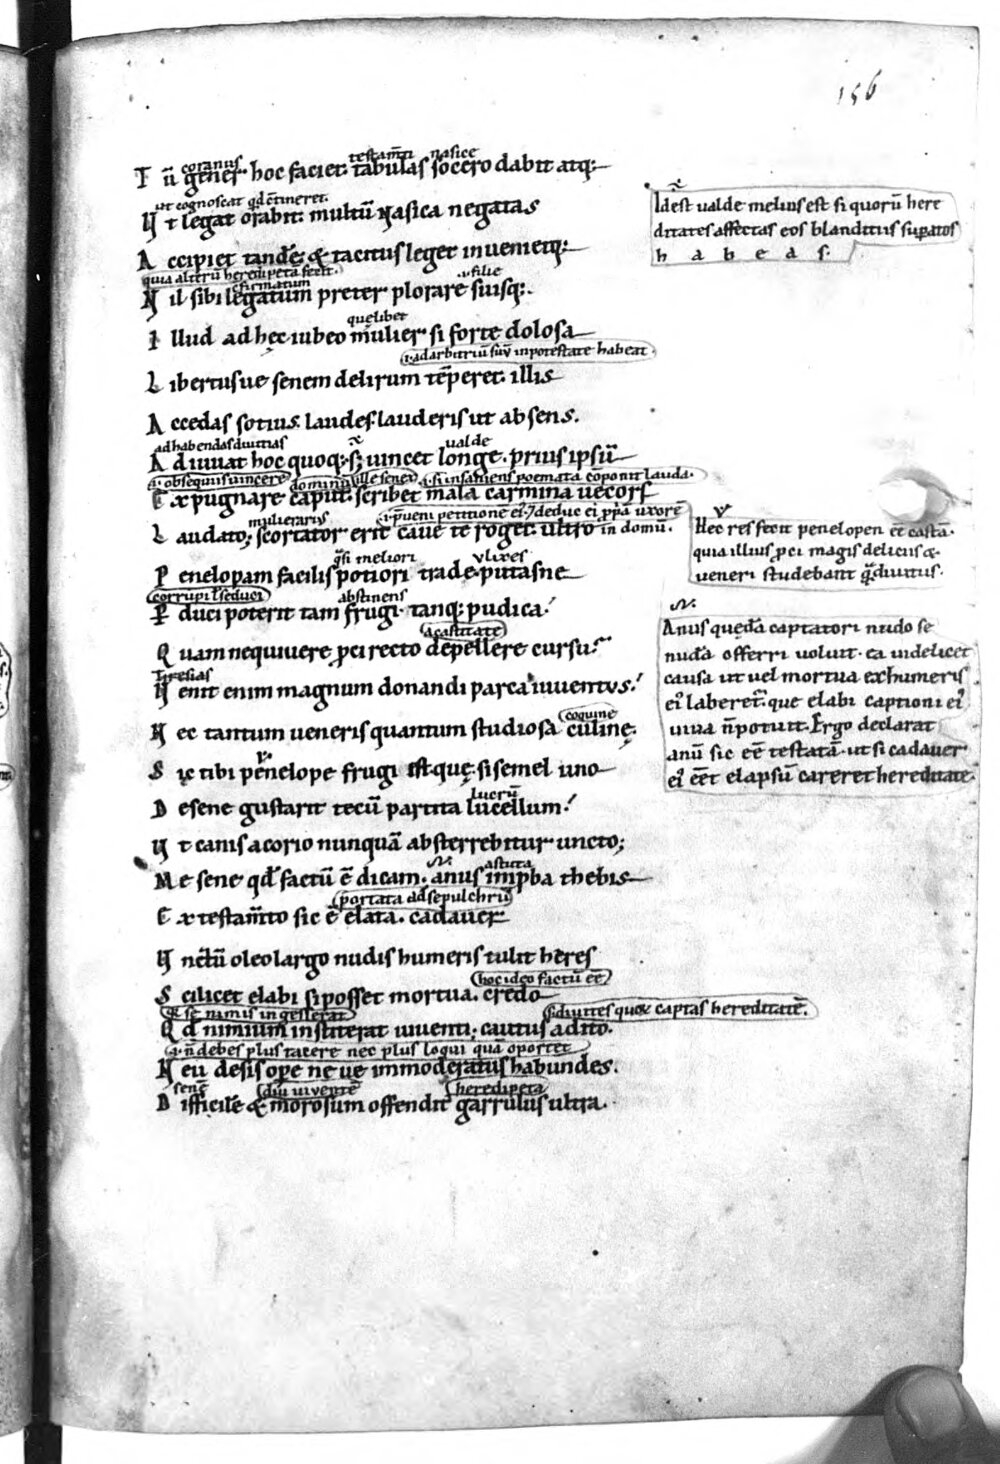 156
coranus testam̄ti nasice
T ū gener hoc faciet tabulas socero dabit atq;
ut cognoscat qd̄ ētineret.
V t legat orabit. multū nasica negatas
A ccipiet tandē. & tacitus leget inuenietq;
quia alterū heredipeta fecit. cfirmatum .i. filie
N il sibi legatum preter plorare suisq;.
quelibet
I llud ad hęc iubeo mulier si forte dolosa
.i. ad arbitriū suū in potestate habeat
L ibertusue senem delirum tēperet. illis
A ccedas sotius. laudes. lauderis ut absens.
ad habendas diuitias ualde
A diuuat hoc quoq; s; uincet longe. prius ipsū
.i. obsequiis uincere dominū ille senex .i. si insaniens poemata cōponit lauda.
E xpugnare caput. scribet mala carmina uecors
mulierarius .i. p̄ueni petitionē ei' & deduc ei ꝓpā uxorē
L audato; scortator erit caue te roget. ultro in domū.
q̄si meliori vlixes
P enelopam facilis potiori trade. putasne
corrupi ł seduci abstinens
P duci poterit tam frugi. tanq; pudica!
a castitate
Q uam nequiuere ꝓci recto depellere cursu.
Tiresias
V enit enim magnum donandi parca iuuentus!
coquine
N ec tantum ueneris quantum studiosa culinę.
S ic tibi penelope frugi est. quę. si semel uno
lucrū
D e sene gustarit tecū partita lucellum!
V t canis a corio nunquā absterrebitur uncto;
astuta
M e sene qd̄ factū ē dicam. anus impba thebis
portata ad sepulchrū
E x testam̄to sic ē elata. cadauer
V nctū oleo largo nudis humeris tulit heres
hoc ideo factū eē
S cilicet elabi si posset mortua. credo
q; se nimis ingesserat si diuites quoq; captas hereditatē.
Q d nimium institerat uiuenti; cautus adito.
.i. n̄ debes plus tacere nec plus loqui quā oportet
N eu desis opę neue immoderatus habundes.
senē diu uiuentē heredipeta
D ifficilē & morosum offendit garrulus ultra.
Id est ualde melius est si quorū here
ditates affectas eos blanditiis supatos
habeas.
Hec res fecit penelopen eē castā.
quia illius ꝓci magis deliciis &
ueneri studebant quā diuitiis.
Anus quędā captatori nudo se
nudā offerri uoluit. ea uidelicet
causa ut uel mortua ex humeris
ei' laberet. que elabi captioni ei'
uiua n̄ potuit. Ergo declarat
anū sic eē testatā. ut si cadauer
ei' eēt elapsū careret hereditate.